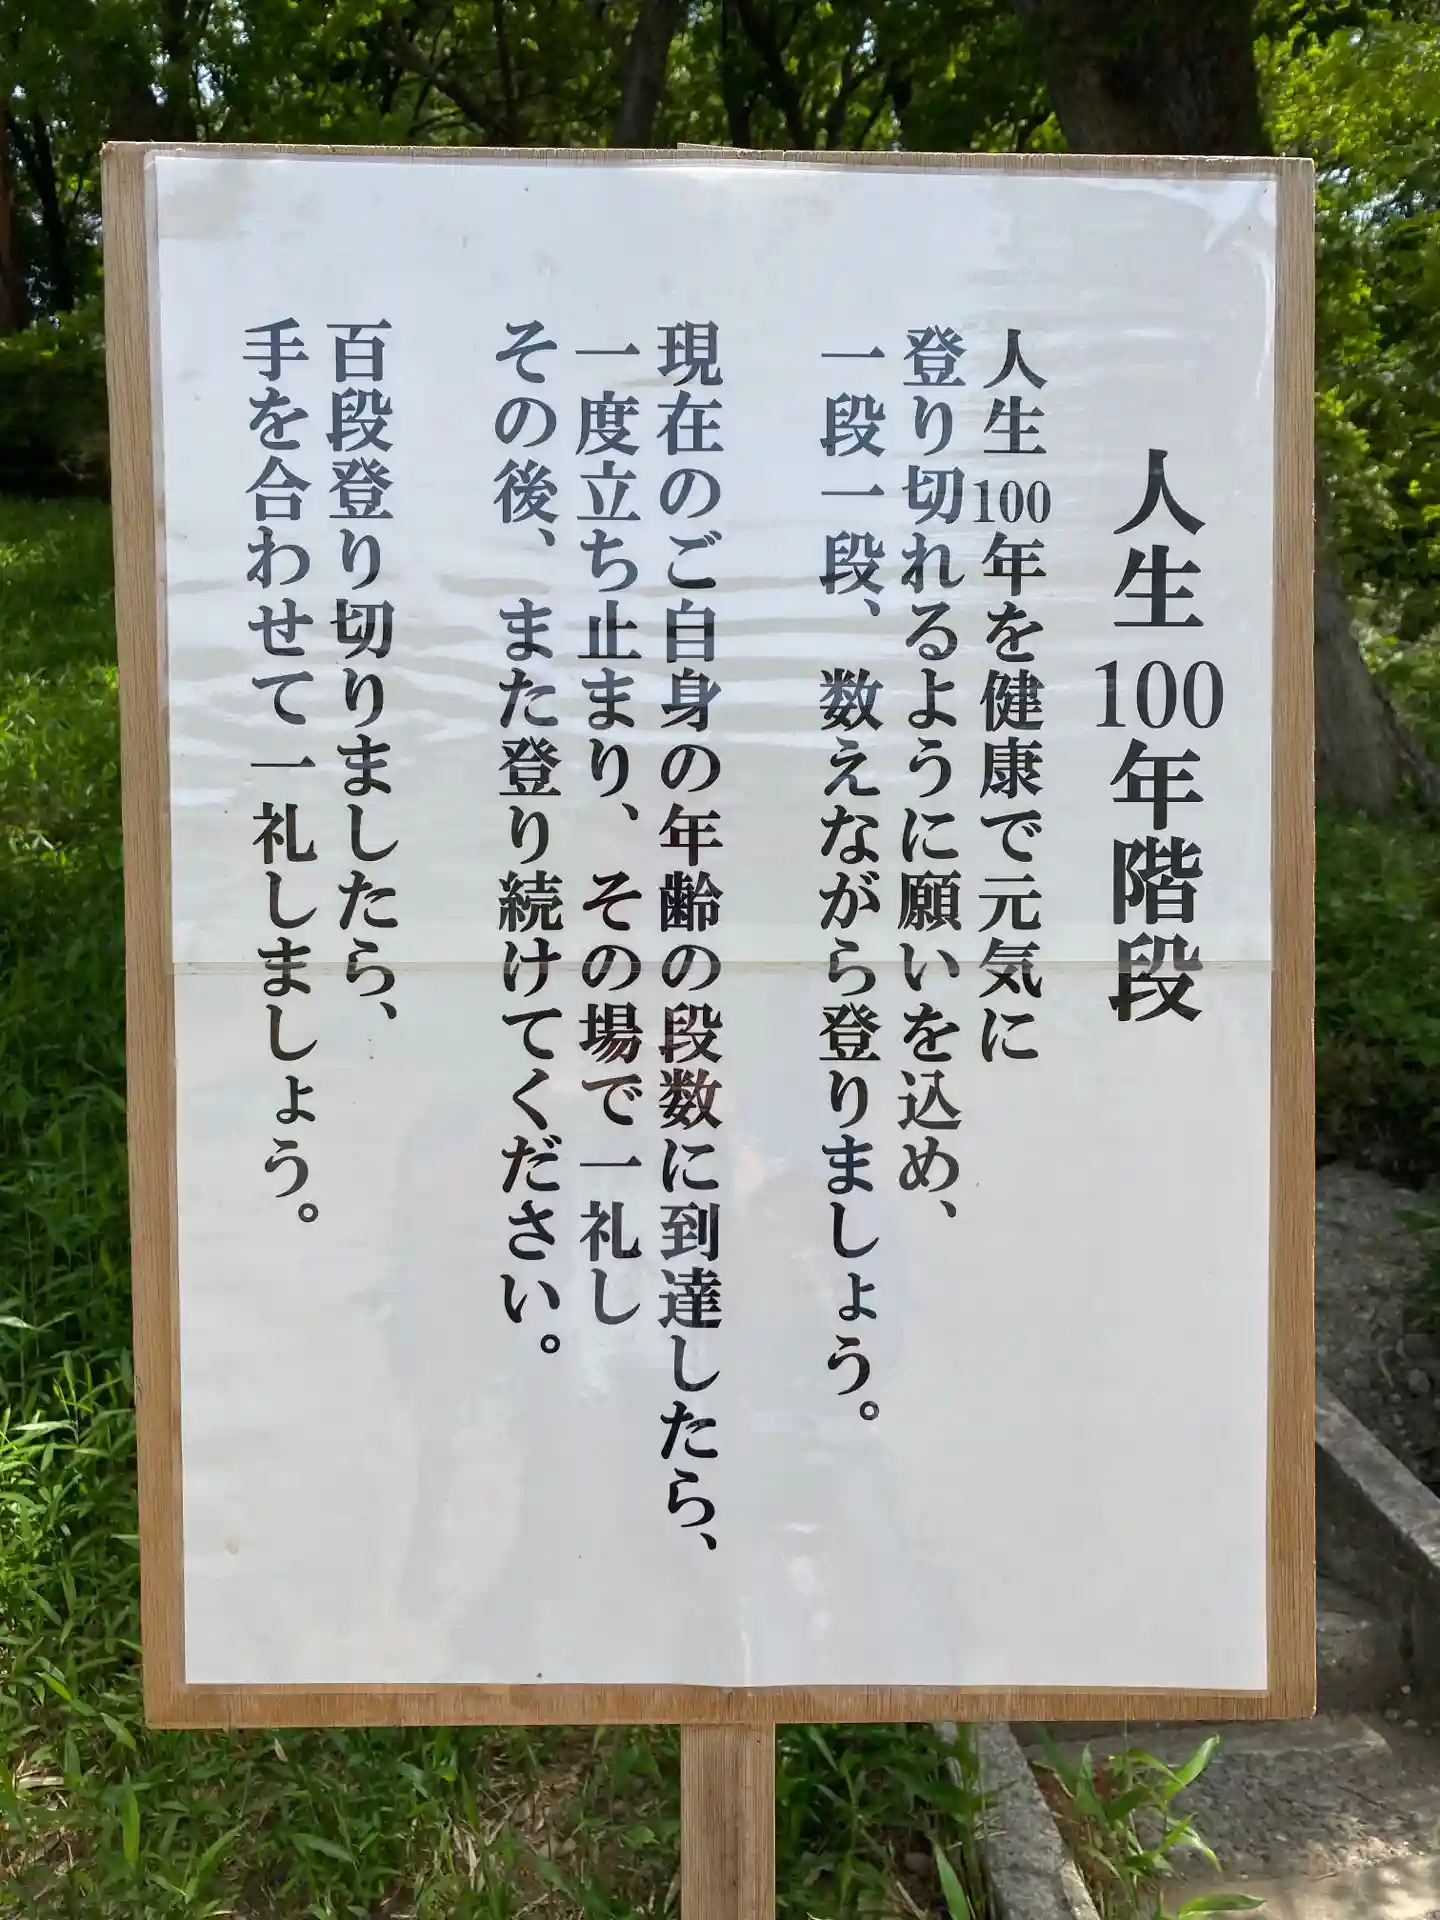 人生100年階段
人生100年を健康で元気に
登り切れるように願いを込め、
一段一段、数えながら登りましょう。
現在のご自身の年齢の段数に到達したら、
一度立ち止まり、その場で一礼し
その後、また登り続けてください。
百段登り切りましたら、
手を合わせて一礼しましょう。